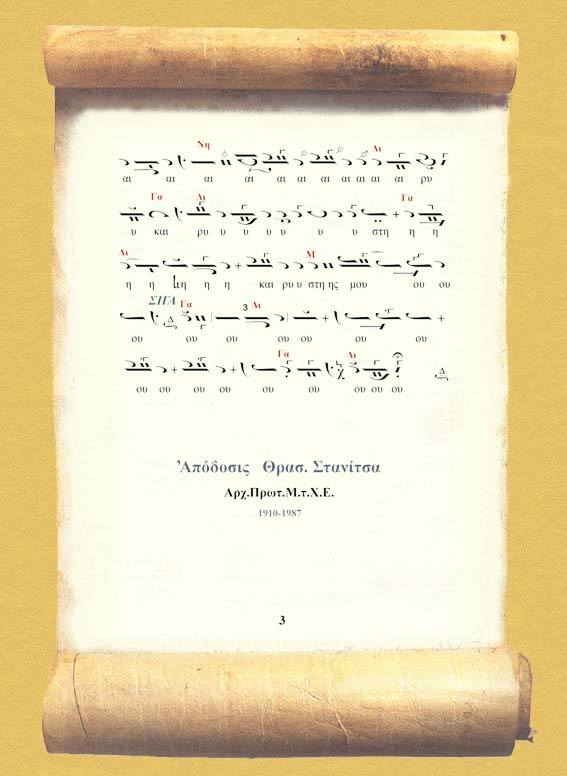 Νη Δι
αι αι αι αι αι αι αι αι αι αι αι ρυ
Γα Δι Γα
υ και ρυ υ υ υ υ υ υ στη η η
Δι Μ
η η μη η η και ρυ υ στη ης μου ου ου
ΣΙΓΑ Γα 3 Δι
ου ου ου ου ου ου ου ου
Γα Δι
ου ου ου ου ου ου ου ου ου
Ἀπόδοσις Θρασ. Στανίτσα
Αρχ.Πρωτ.Μ.τ.Χ.Ε.
1910-1987
3